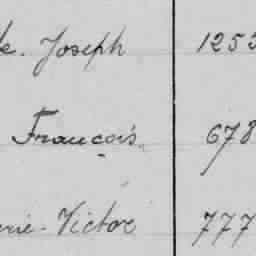 Joseph 1253
François 678
Victor 777